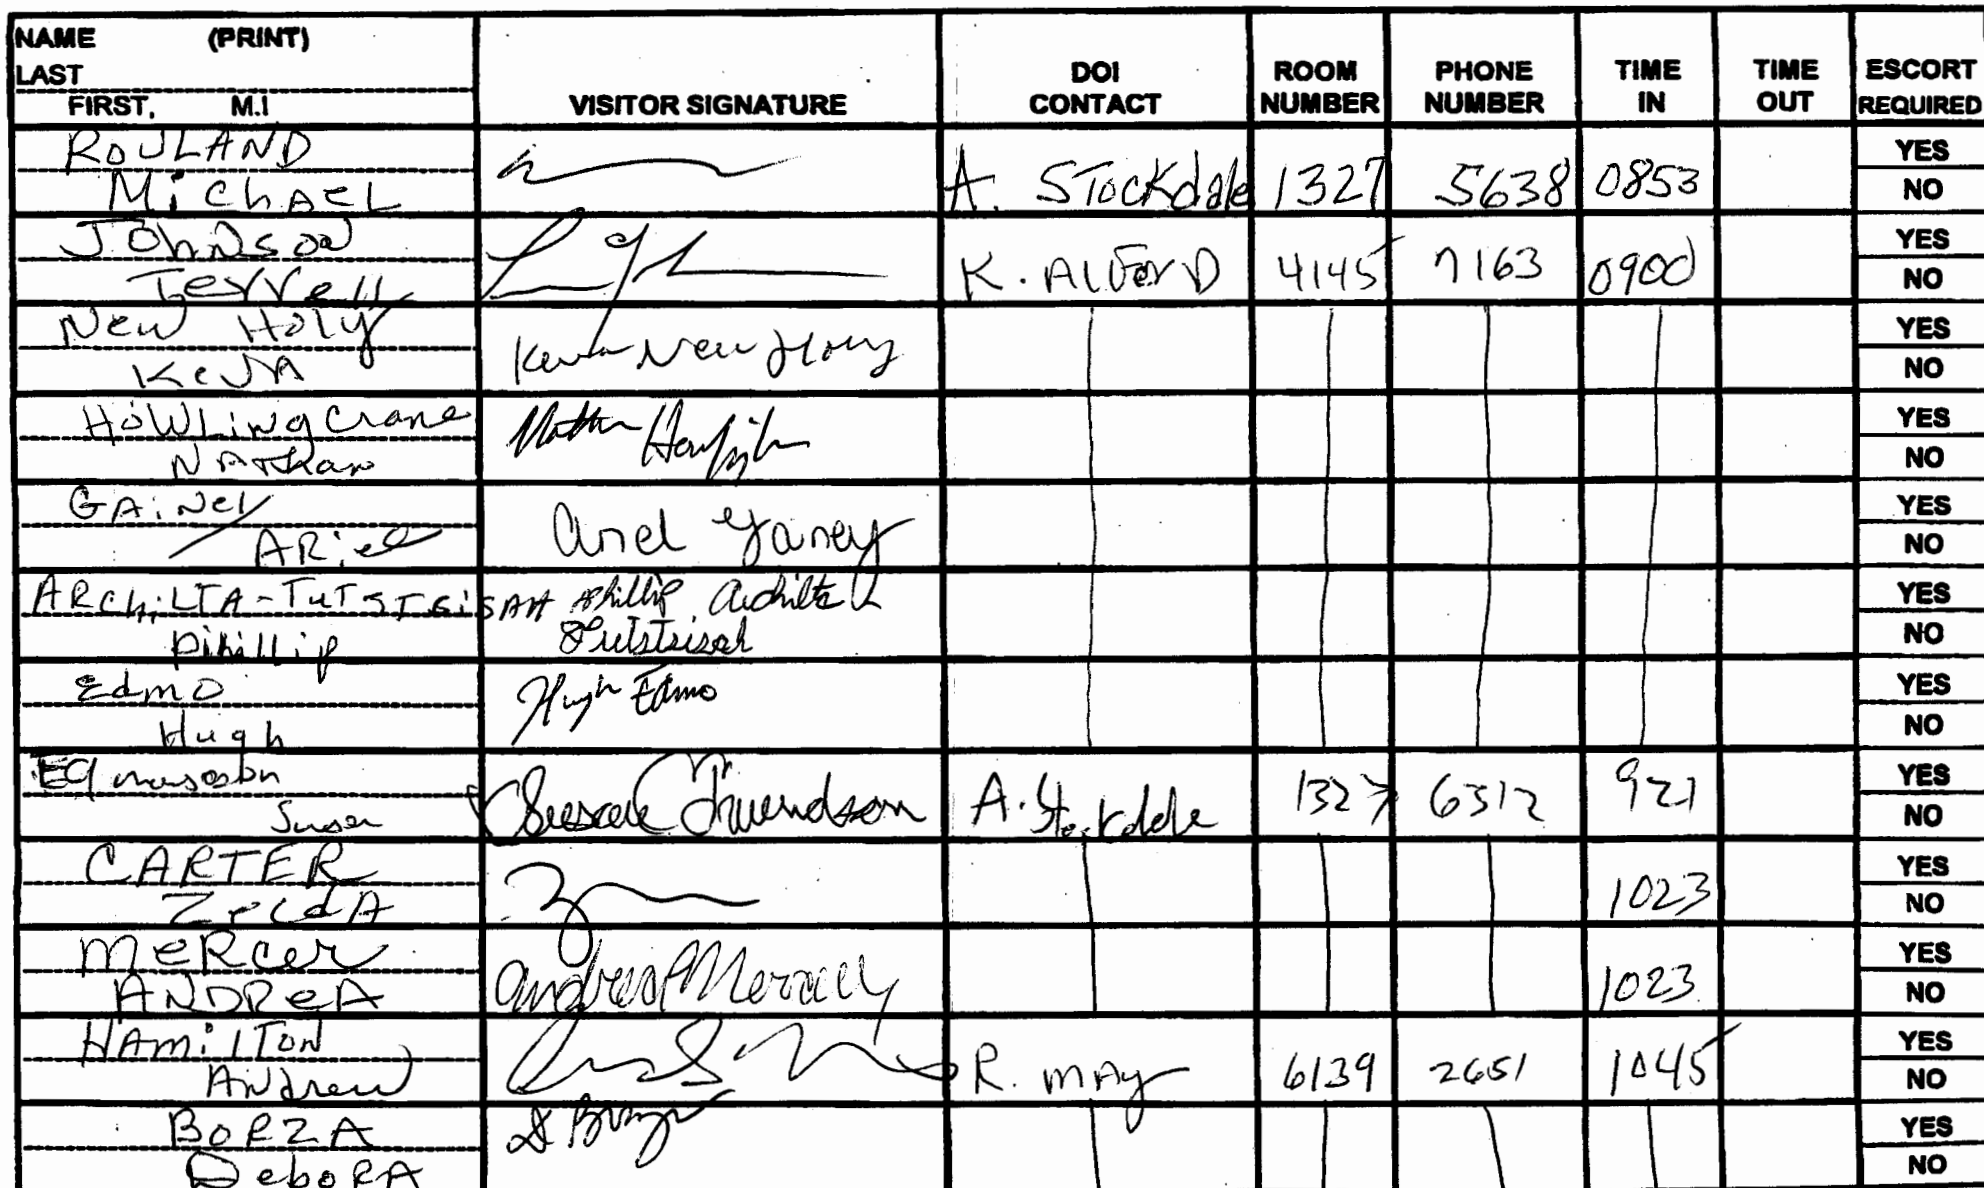 NAME (PRINT)
LAST
FIRST, M.I
VISITOR SIGNATURE
DOI
CONTACT
ROOM
NUMBER
PHONE
NUMBER
TIME
IN
TIME
OUT
ESCORT
REQUIRED
ROULAND
MichAEL
A. STockdale 1327 5638 0853
YES
NO
JOhNSON
Terrell
K. AlForD 4145 7163 0900
YES
NO
New Holy
KeVA
New Holy
YES
NO
HOWLiNgCrane
NAthan
YES
NO
GAiNey
ARiel
Ariel Gainey
YES
NO
ARchiLTA-TuTSTSiSAH
Phillip
Phillip Archilta
Tutstsisah
YES
NO
Edmo
Hugh
Hugh Edmo
YES
NO
Susan
A. Stockdale 1327 6312 921
YES
NO
CARTER
ZeldA
1023
YES
NO
MeRcer
ANDReA
1023
YES
NO
HAmilTON
Andrew
R. mAy 6139 2651 1045
YES
NO
BORZA
DeboRA
D Borza
YES
NO